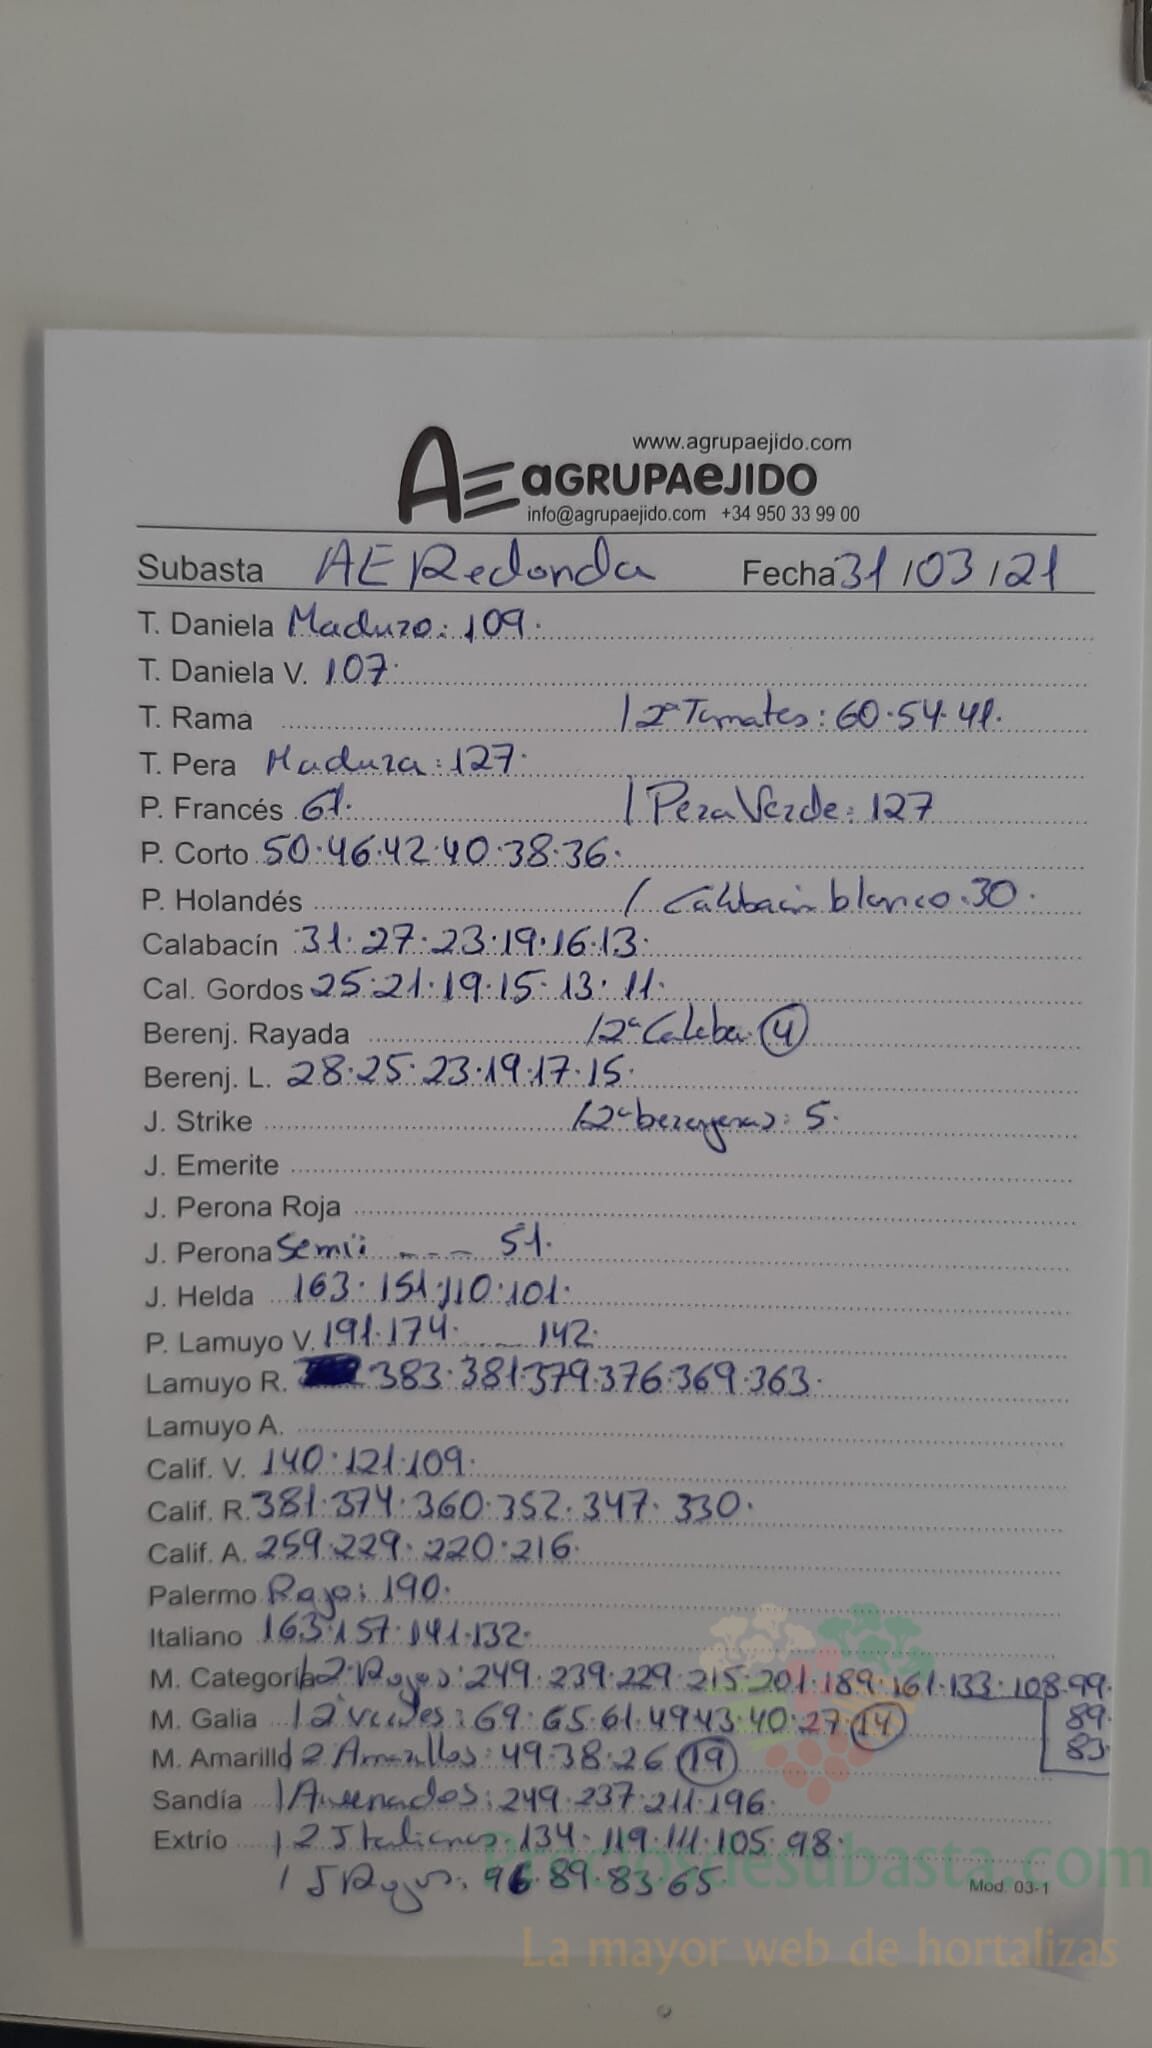 www.agrupaejido.com
AE aGRUPAeJIDO
info@agrupaejido.com +34 950 33 99 00
Subasta AE Redonda Fecha 31/03/21
T. Daniela Maduro: 109.
T. Daniela V. 107.
T. Rama / 2ª Tomates: 60.54.41.
T. Pera Madura: 127.
P. Francés 61. / Pera Verde: 127
P. Corto 50.46.42.40.38.36.
P. Holandés / Calabacin blanco.30.
Calabacín 31.27.23.19.16.13.
Cal. Gordos 25.21.19.15.13.11.
Berenj. Rayada / 2ª Calaba. 4
Berenj. L. 28.25.23.19.17.15.
J. Strike / 2ª berenjenas: 5.
J. Emerite
J. Perona Roja
J. Perona Semi: --- 51.
J. Helda 163.151.110.101.
P. Lamuyo V. 191.174. --- 142.
Lamuyo R. 383.381.379.376.369.363.
Lamuyo A.
Calif. V. 140.121.109.
Calif. R. 381.374.360.352.347.330.
Calif. A. 259.229.220.216.
Palermo Rojo: 190.
Italiano 163.157.141.132.
M. Categoría / 2 Rojos: 249.239.229.215.201.189.161.133.108.99.
M. Galia / 2 Verdes: 69.65.61.49.43.40.27.14 89.
M. Amarillo / 2 Amarillos: 49.38.26 19 83
Sandía / Asurados: 249.237.211.196.
Extrío / 2 Italianos. 134.119.111.105.98.
/ J Rojos: 96.89.83.65
Mod. 03-1
Preciosdesubasta.com
La mayor web de hortalizas